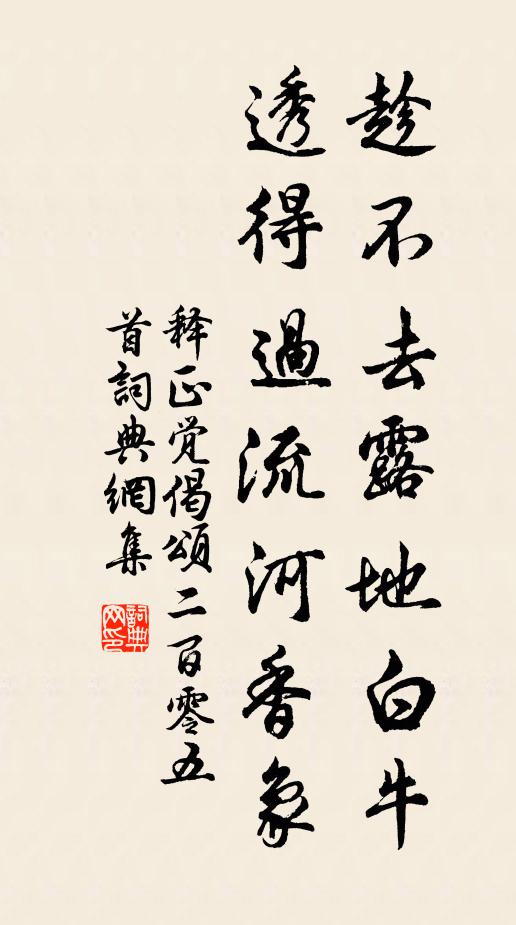 趁不去露地白牛
透得過流河香象
释正觉偈頌二百零五
首詞典網集
詞典网印